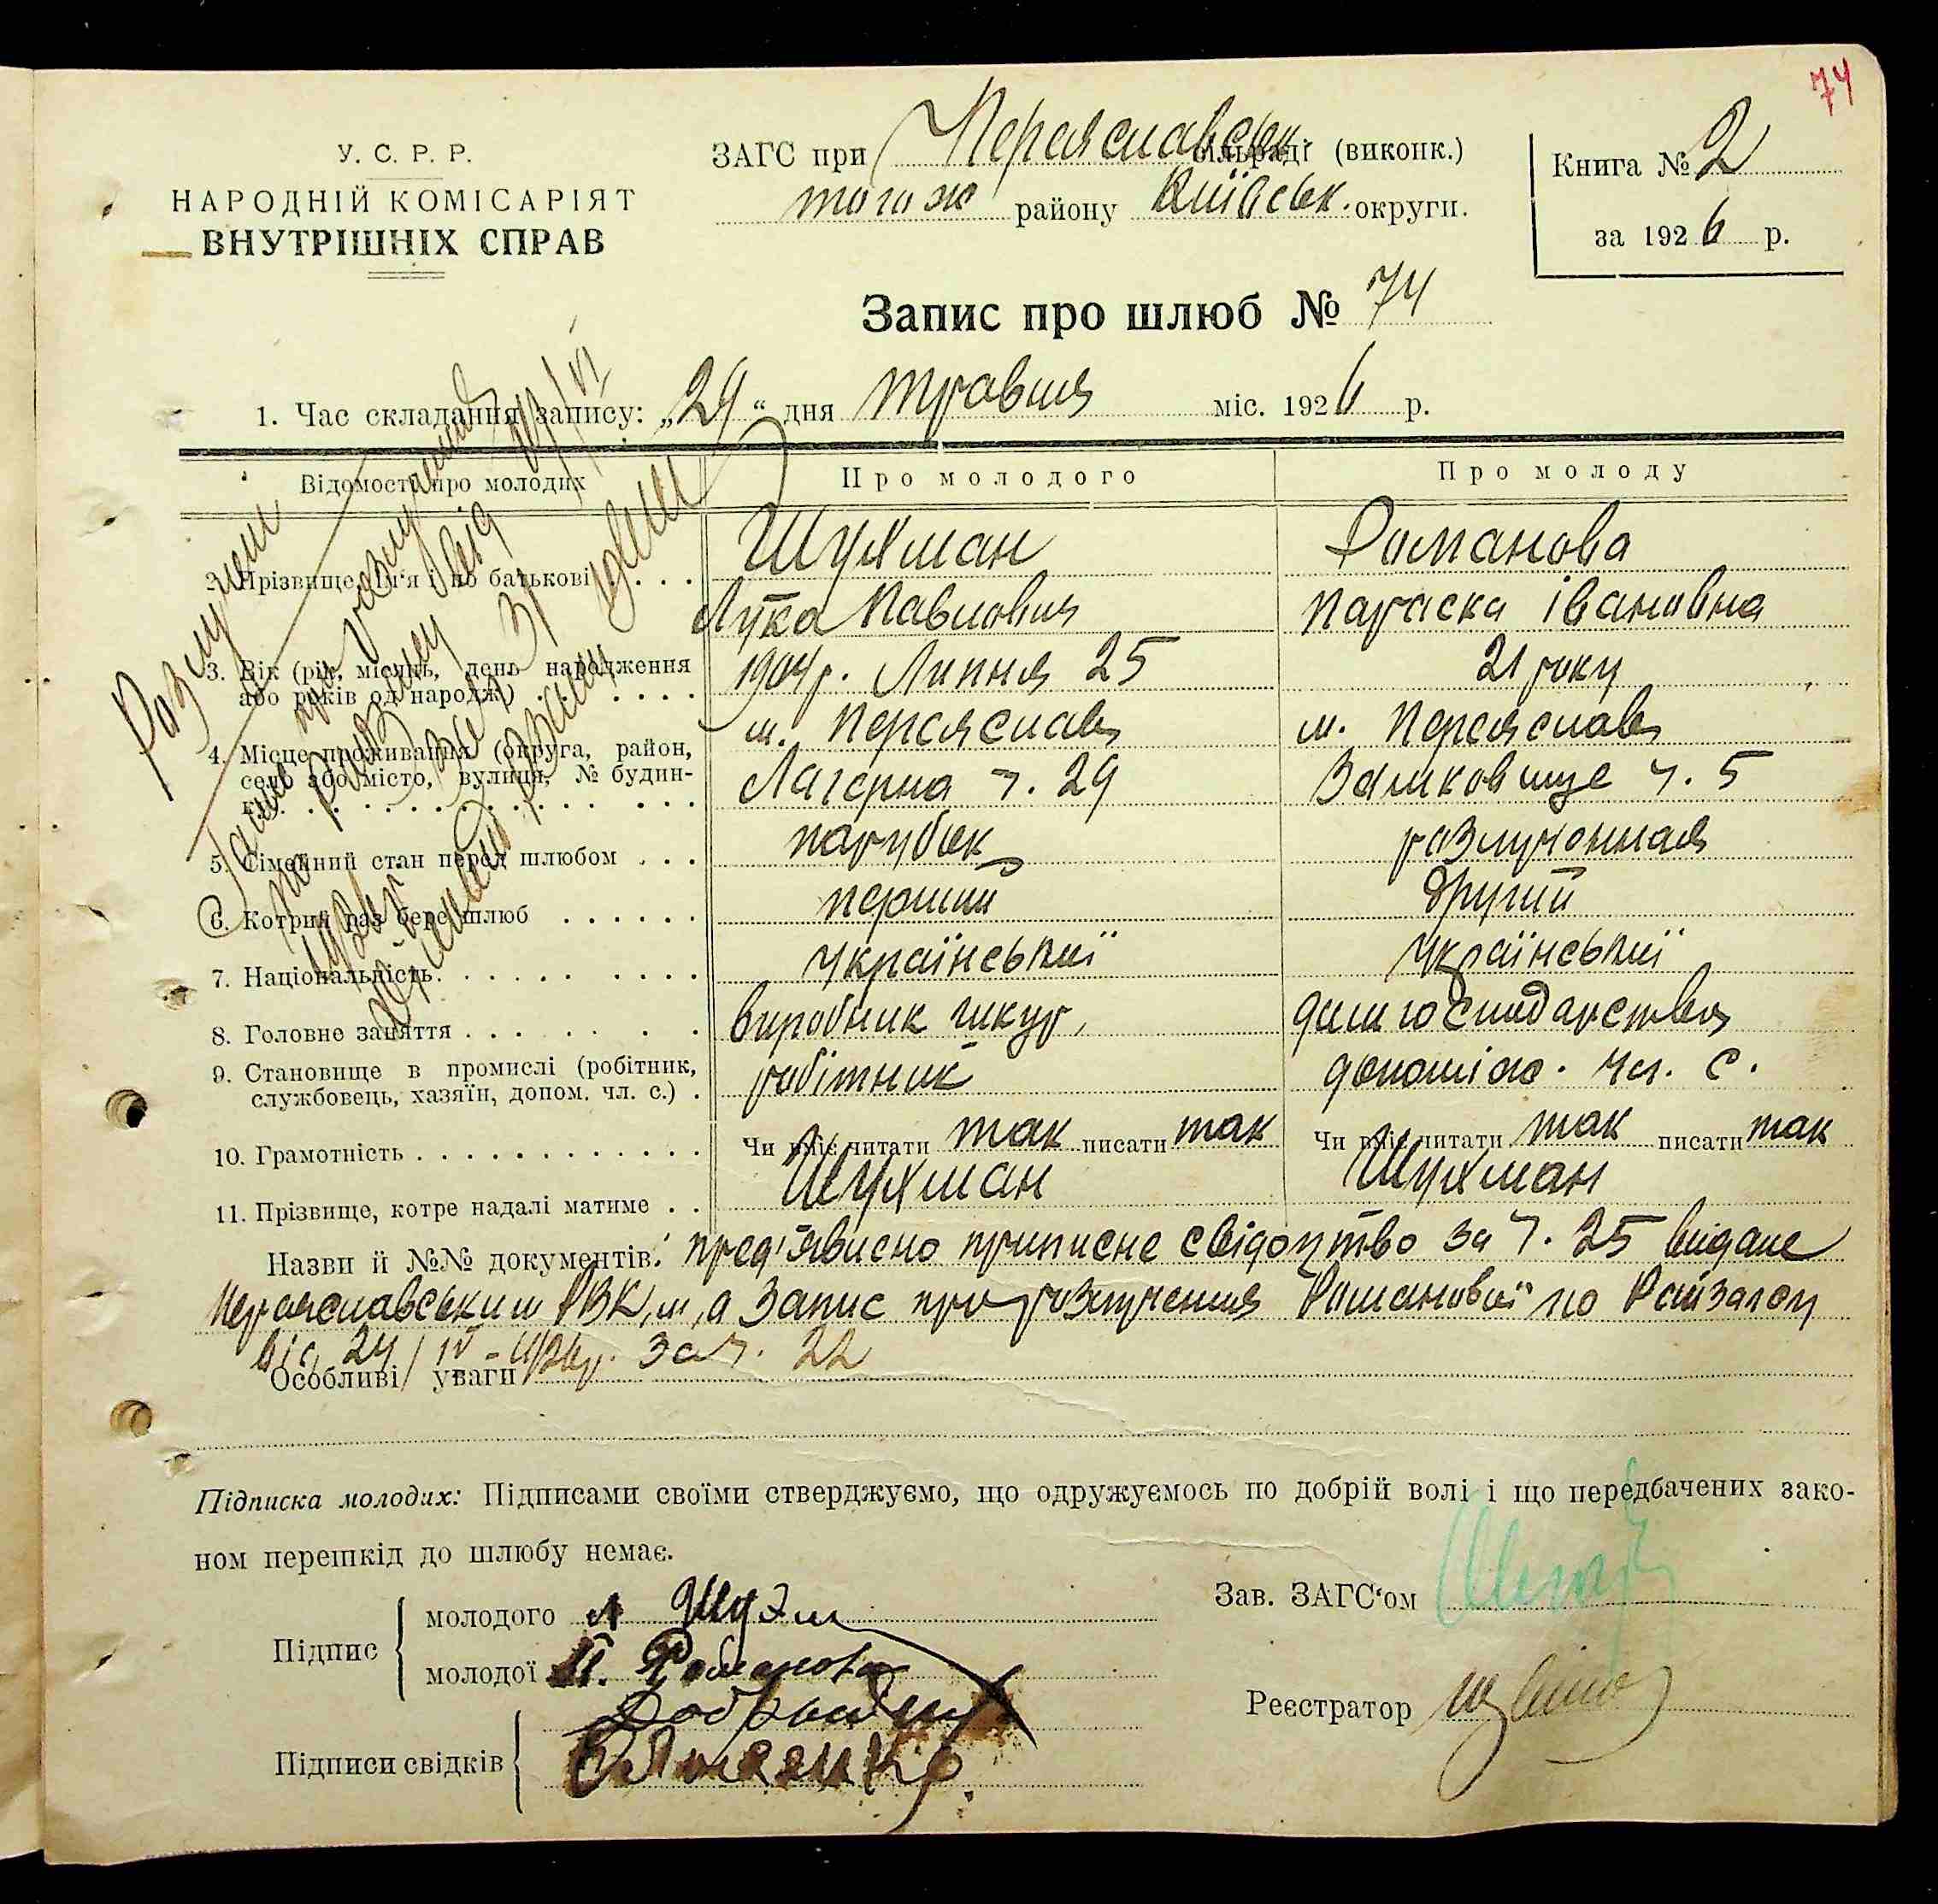 74
У. С. Р. Р.
НАРОДНІЙ КОМІСАРІЯТ
ВНУТРІШНІХ СПРАВ
ЗАГС при Переяславськ. сільраді (виконк.)
того ж району Київськ. округи.
Книга № 2
за 1926 р.
Запис про шлюб № 74
1. Час складання запису: „29“ дня травня міс. 1926 р.
Відомості про молодих Про молодого Про молоду
2. Прізвище, ім'я і по батькові . . . . Шухман Романова
Лука Павлович Параска Івановна
3. Вік (рік, місяць, день народження
або років од народж.) . . . . . 1904 р. Липня 25 21 року
4. Місце проживання (округа, район, м. Переяслав м. Переяслав
село або місто, вулиця, № будин-
ку . . . . . . . . . . . . Лагерна ч. 29 Замковище ч. 5
5. Сімейний стан перед шлюбом . . . парубок разлученная
6. Котрий раз бере шлюб . . . . . . перший другий
7. Національність . . . . . . . . . український український
8. Головне заняття . . . . . . . . виробник шкур, дом господарства
9. Становище в промислі (робітник,
службовець, хазяїн, допом. чл. с.) . робітник допоміж. чл. с.
10. Грамотність . . . . . . . . . . . . Чи вміє читати так писати так Чи вміє читати так писати так
11. Прізвище, котре надалі матиме . . Шухман Шухман
Назви й №№ документів: пред'явлено приписне свідоцтво за ч. 25 видане
Переяславським РВК, а запис про розлучення Романової по Райзагсу
від 24/IV-1926 р. за ч. 22
Особливі уваги
Підписка молодих: Підписами своїми стверджуємо, що одружуємось по добрій волі і що передбачених зако-
ном перешкід до шлюбу немає.
Зав. ЗАГС‘ом
Підпис
молодого Л Шухм
молодої П. Романова
Реєстратор
Підписи свідків